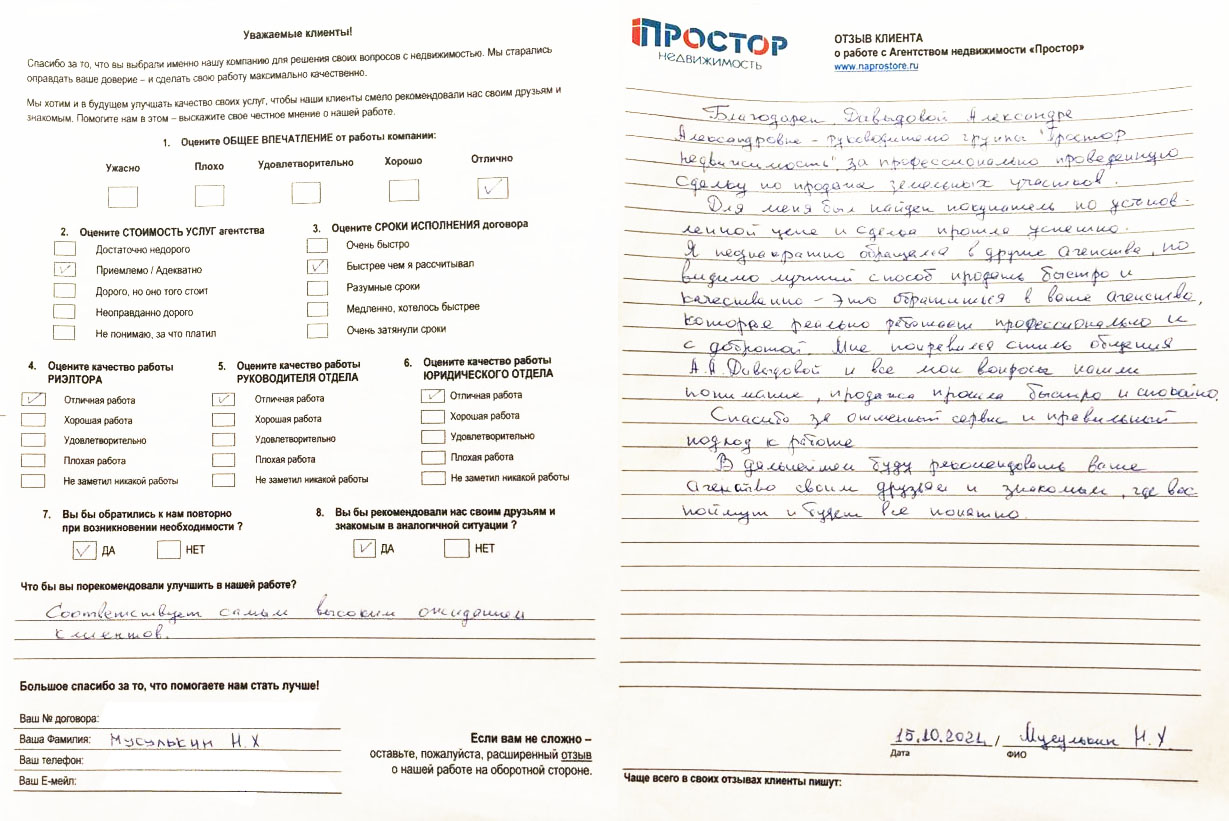 Уважаемые клиенты!
Спасибо за то, что вы выбрали именно нашу компанию для решения своих вопросов с недвижимостью. Мы старались
оправдать ваше доверие – и сделать свою работу максимально качественно.
Мы хотим и в будущем улучшать качество своих услуг, чтобы наши клиенты смело рекомендовали нас своим друзьям и
знакомым. Помогите нам в этом – выскажите свое честное мнение о нашей работе.
1. Оцените ОБЩЕЕ ВПЕЧАТЛЕНИЕ от работы компании:
Ужасно Плохо Удовлетворительно Хорошо Отлично
2. Оцените СТОИМОСТЬ УСЛУГ агентства
Достаточно недорого
Приемлемо / Адекватно
Дорого, но оно того стоит
Неоправданно дорого
Не понимаю, за что платил
3. Оцените СРОКИ ИСПОЛНЕНИЯ договора
Очень быстро
Быстрее чем я рассчитывал
Разумные сроки
Медленно, хотелось быстрее
Очень затянули сроки
4. Оцените качество работы
РИЭЛТОРА
Отличная работа
Хорошая работа
Удовлетворительно
Плохая работа
Не заметил никакой работы
5. Оцените качество работы
РУКОВОДИТЕЛЯ ОТДЕЛА
Отличная работа
Хорошая работа
Удовлетворительно
Плохая работа
Не заметил никакой работы
6. Оцените качество работы
ЮРИДИЧЕСКОГО ОТДЕЛА
Отличная работа
Хорошая работа
Удовлетворительно
Плохая работа
Не заметил никакой работы
7. Вы бы обратились к нам повторно
при возникновении необходимости ?
ДА НЕТ
8. Вы бы рекомендовали нас своим друзьям и
знакомым в аналогичной ситуации ?
ДА НЕТ
Что бы вы порекомендовали улучшить в нашей работе?
Соответствует самым высоким ожиданием
клиентов.
Большое спасибо за то, что помогаете нам стать лучше!
Ваш № договора:
Ваша Фамилия: Мусулькин Н.Х
Ваш телефон:
Ваш Е-мейл:
Если вам не сложно –
оставьте, пожалуйста, расширенный отзыв
о нашей работе на оборотной стороне.
ПРОСТОР
НЕДВИЖИМОСТЬ
ОТЗЫВ КЛИЕНТА
о работе с Агентством недвижимости «Простор»
www.naprostore.ru
Благодарен Давыдовой Александре
Александровне - руководителю группы "Простор
недвижимость" за профессионально проведенную
сделку по продаже земельных участков.
Для меня был найден покупатель по установ-
ленной цене и сделка прошла успешно.
Я неоднократно обращался в другие агенства, но
видимо лучший способ продать быстро и
качественно - это обратиться в ваше агенство,
которое реально работает профессионально и
с добротой. Мне понравился стиль общения
А.А. Давыдовой и все мои вопросы нашли
понимание, продажа прошла быстро и спокойно.
Спасибо за отменный сервис и правильный
подход к работе
В дальнейшем буду рекомендовать ваше
агенство своим друзьям и знакомым, где вас
поймут и будет все понятно.
15.10.2021 / Мусулькин Н.Х.
Дата ФИО
Чаще всего в своих отзывах клиенты пишут: